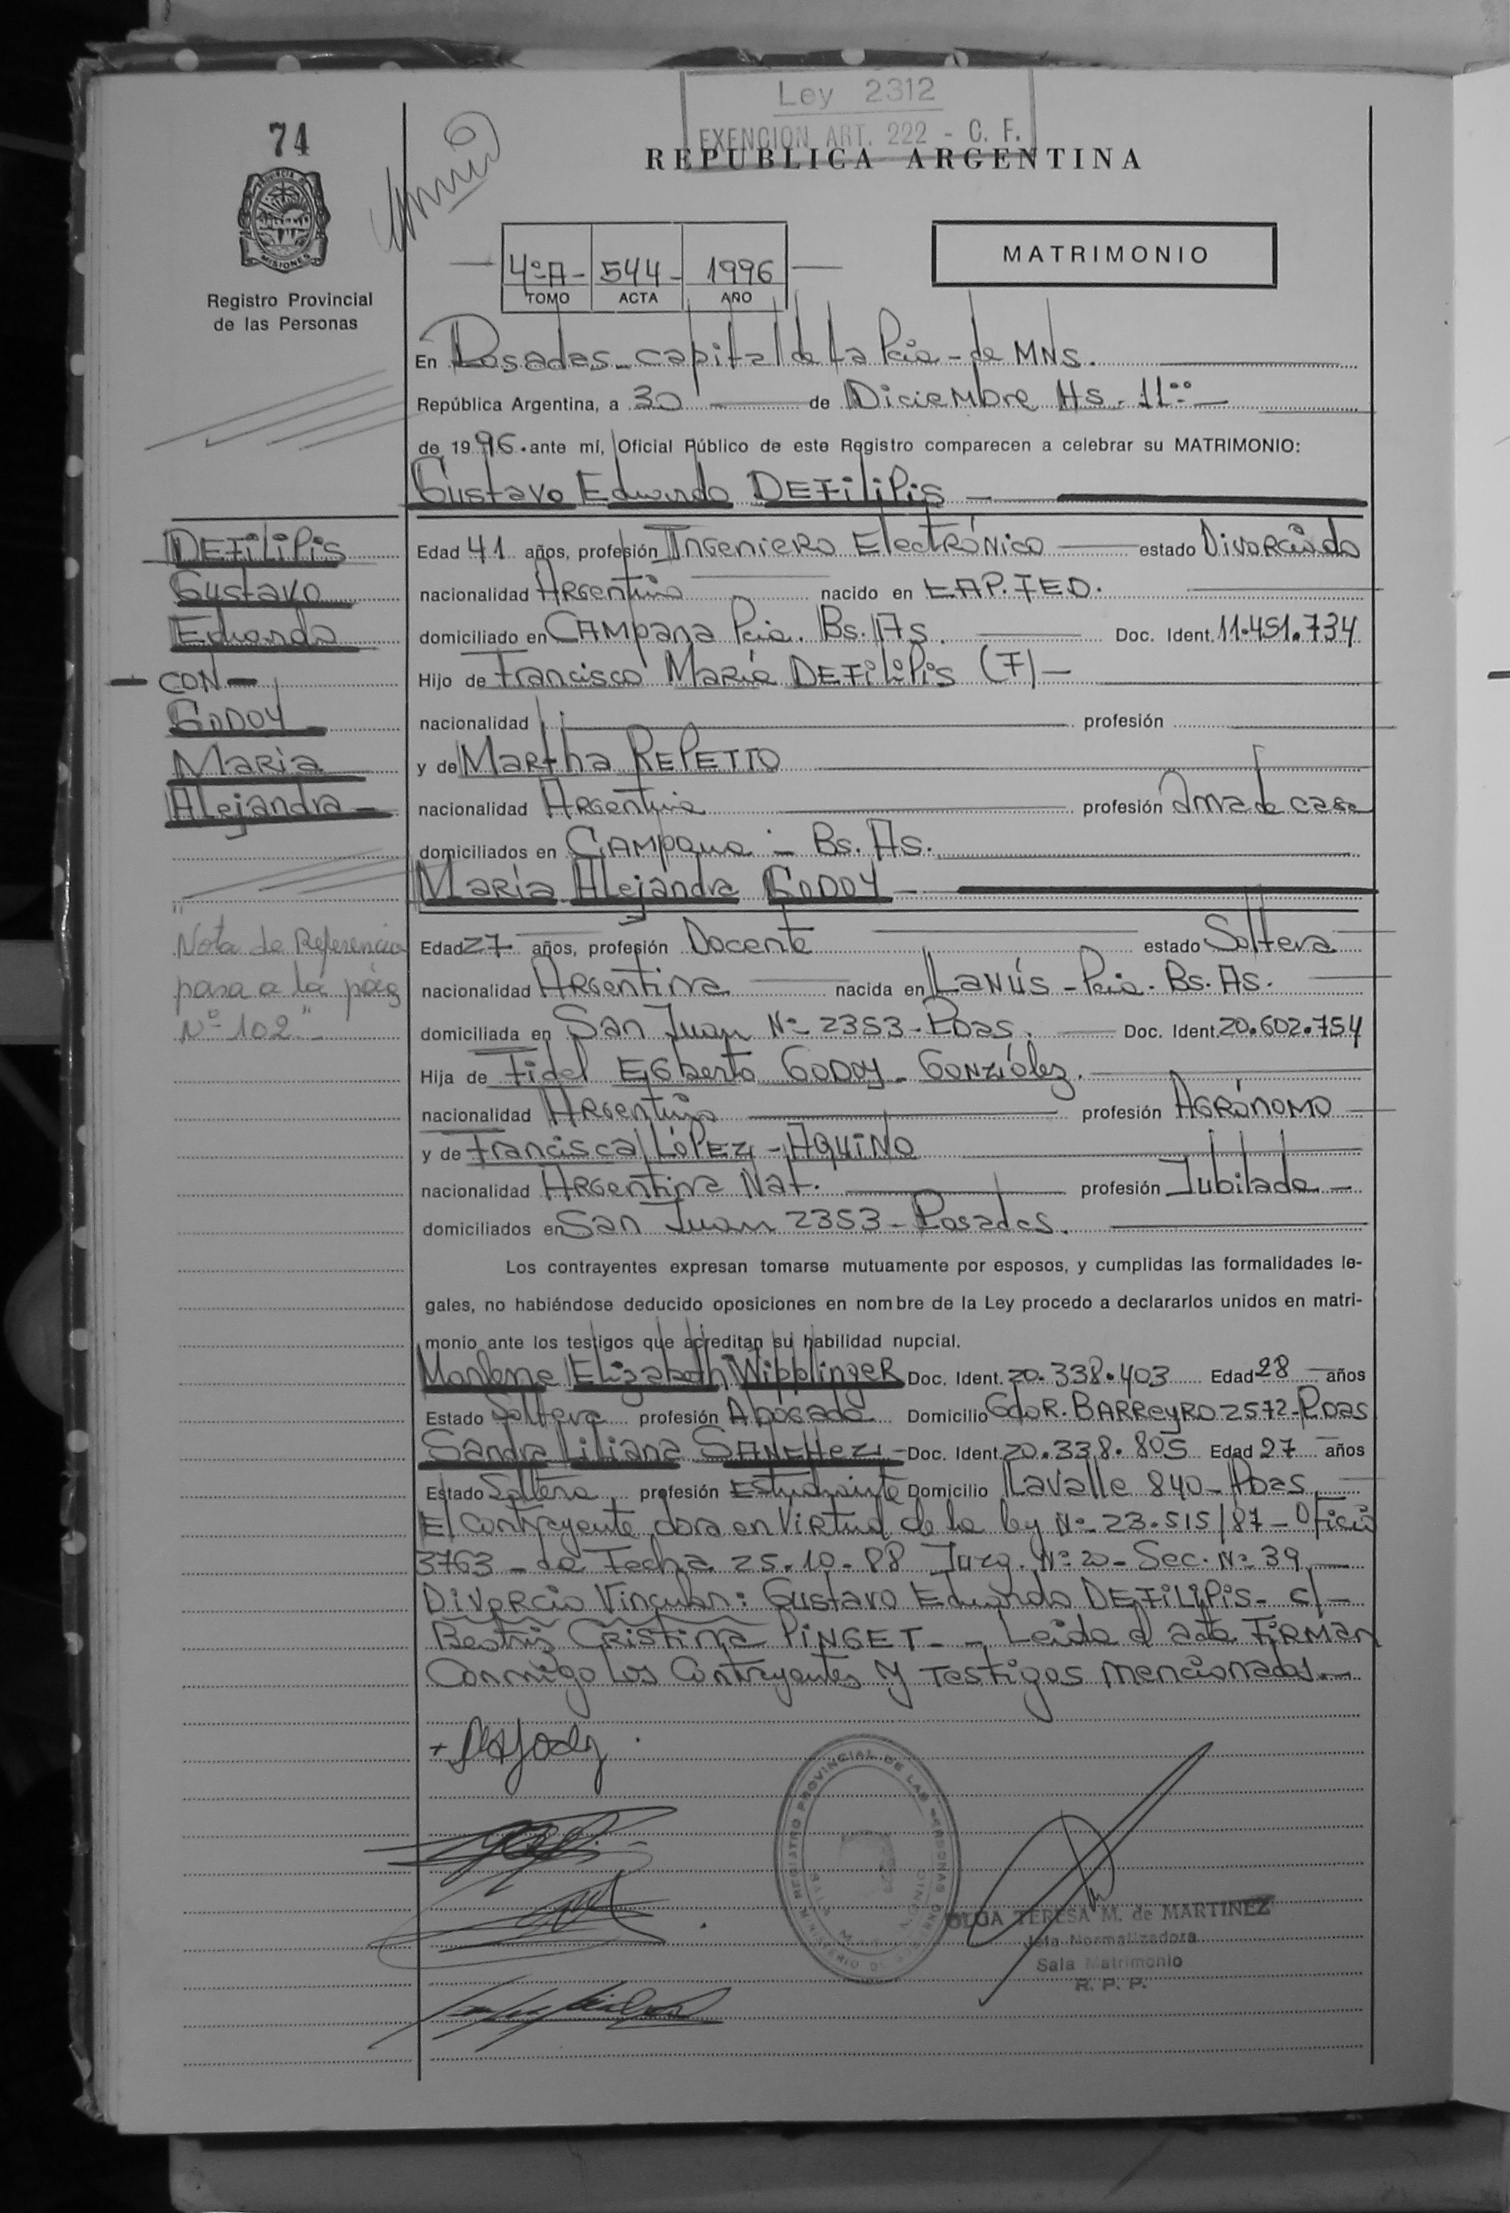 Ley 2312
EXENCION ART. 222 - C. F.
74
REPUBLICA ARGENTINA
MISIONES
Registro Provincial
de las Personas
4º A - 544 - 1996
TOMO ACTA AÑO
MATRIMONIO
En Posadas - capital de la Pcia - de MNS.
República Argentina, a 30 de Diciembre Hs. 11:00
de 1996. ante mí, Oficial Público de este Registro comparecen a celebrar su MATRIMONIO:
Gustavo Eduardo DEFiLiPiS
DEFiLiPiS
Gustavo
Eduardo
- CON -
GODOY
Maria
Alejandra -
Edad 41 años, profesión Ingeniero Electrónico estado Divorciado
nacionalidad Argentino nacido en CAP. FED.
domiciliado en CAMpana Pcia. Bs. As. Doc. Ident. 11.451.734
Hijo de Francisco María DEFiLiPiS (F) -
nacionalidad profesión
y de Martha REPETTO
nacionalidad Argentina profesión ama de casa
domiciliados en CAMpana - Bs. As.
María Alejandra GODOY -
"Nota de Referencia
pasa a la pág
Nº 102"
Edad 27 años, profesión Docente estado Soltera
nacionalidad Argentina nacida en LANÚS - Pcia. Bs. As.
domiciliada en San Juan Nº 2353 - Pdas. Doc. Ident. 20.602.754
Hija de Fidel EGberto GODOY - GONzález.
nacionalidad Argentino profesión AGRÓNOMO
y de Francisca LÓPEZ - AQUiNO
nacionalidad Argentina Nat. profesión Jubilada -
domiciliados en San Juan 2353 - Posadas.
Los contrayentes expresan tomarse mutuamente por esposos, y cumplidas las formalidades le-
gales, no habiéndose deducido oposiciones en nombre de la Ley procedo a declararlos unidos en matri-
monio ante los testigos que acreditan su habilidad nupcial.
Marlene Elizabeth Wipplinger Doc. Ident. 20.338.403 Edad 28 años
Estado Soltera profesión Abogada Domicilio Gdor. BARReyRO 2572 - Pdas
Sandra Liliana SANCHEZ - Doc. Ident. 20.338.805 Edad 27 años
Estado Soltera profesión Estudiante Domicilio Lavalle 840 - Pdas.
El Contrayente obra en Virtud de la ley Nº 23.515/87 - Oficio
3763 - de Fecha 25.10.88 Juzg. Nº 20 - Sec. Nº 39
Divorcio Vincular: Gustavo Eduardo DEFiLiPiS - c/ -
Beatriz Cristina PiNGET - - Leida el acta FiRMan
Conmigo los Contrayentes y Testigos mencionados. -
REGISTRO PROVINCIAL DE LAS PERSONAS
OLGA TERESA M. de MARTINEZ
Jefa Normalizadora
Sala Matrimonio
R. P. P.